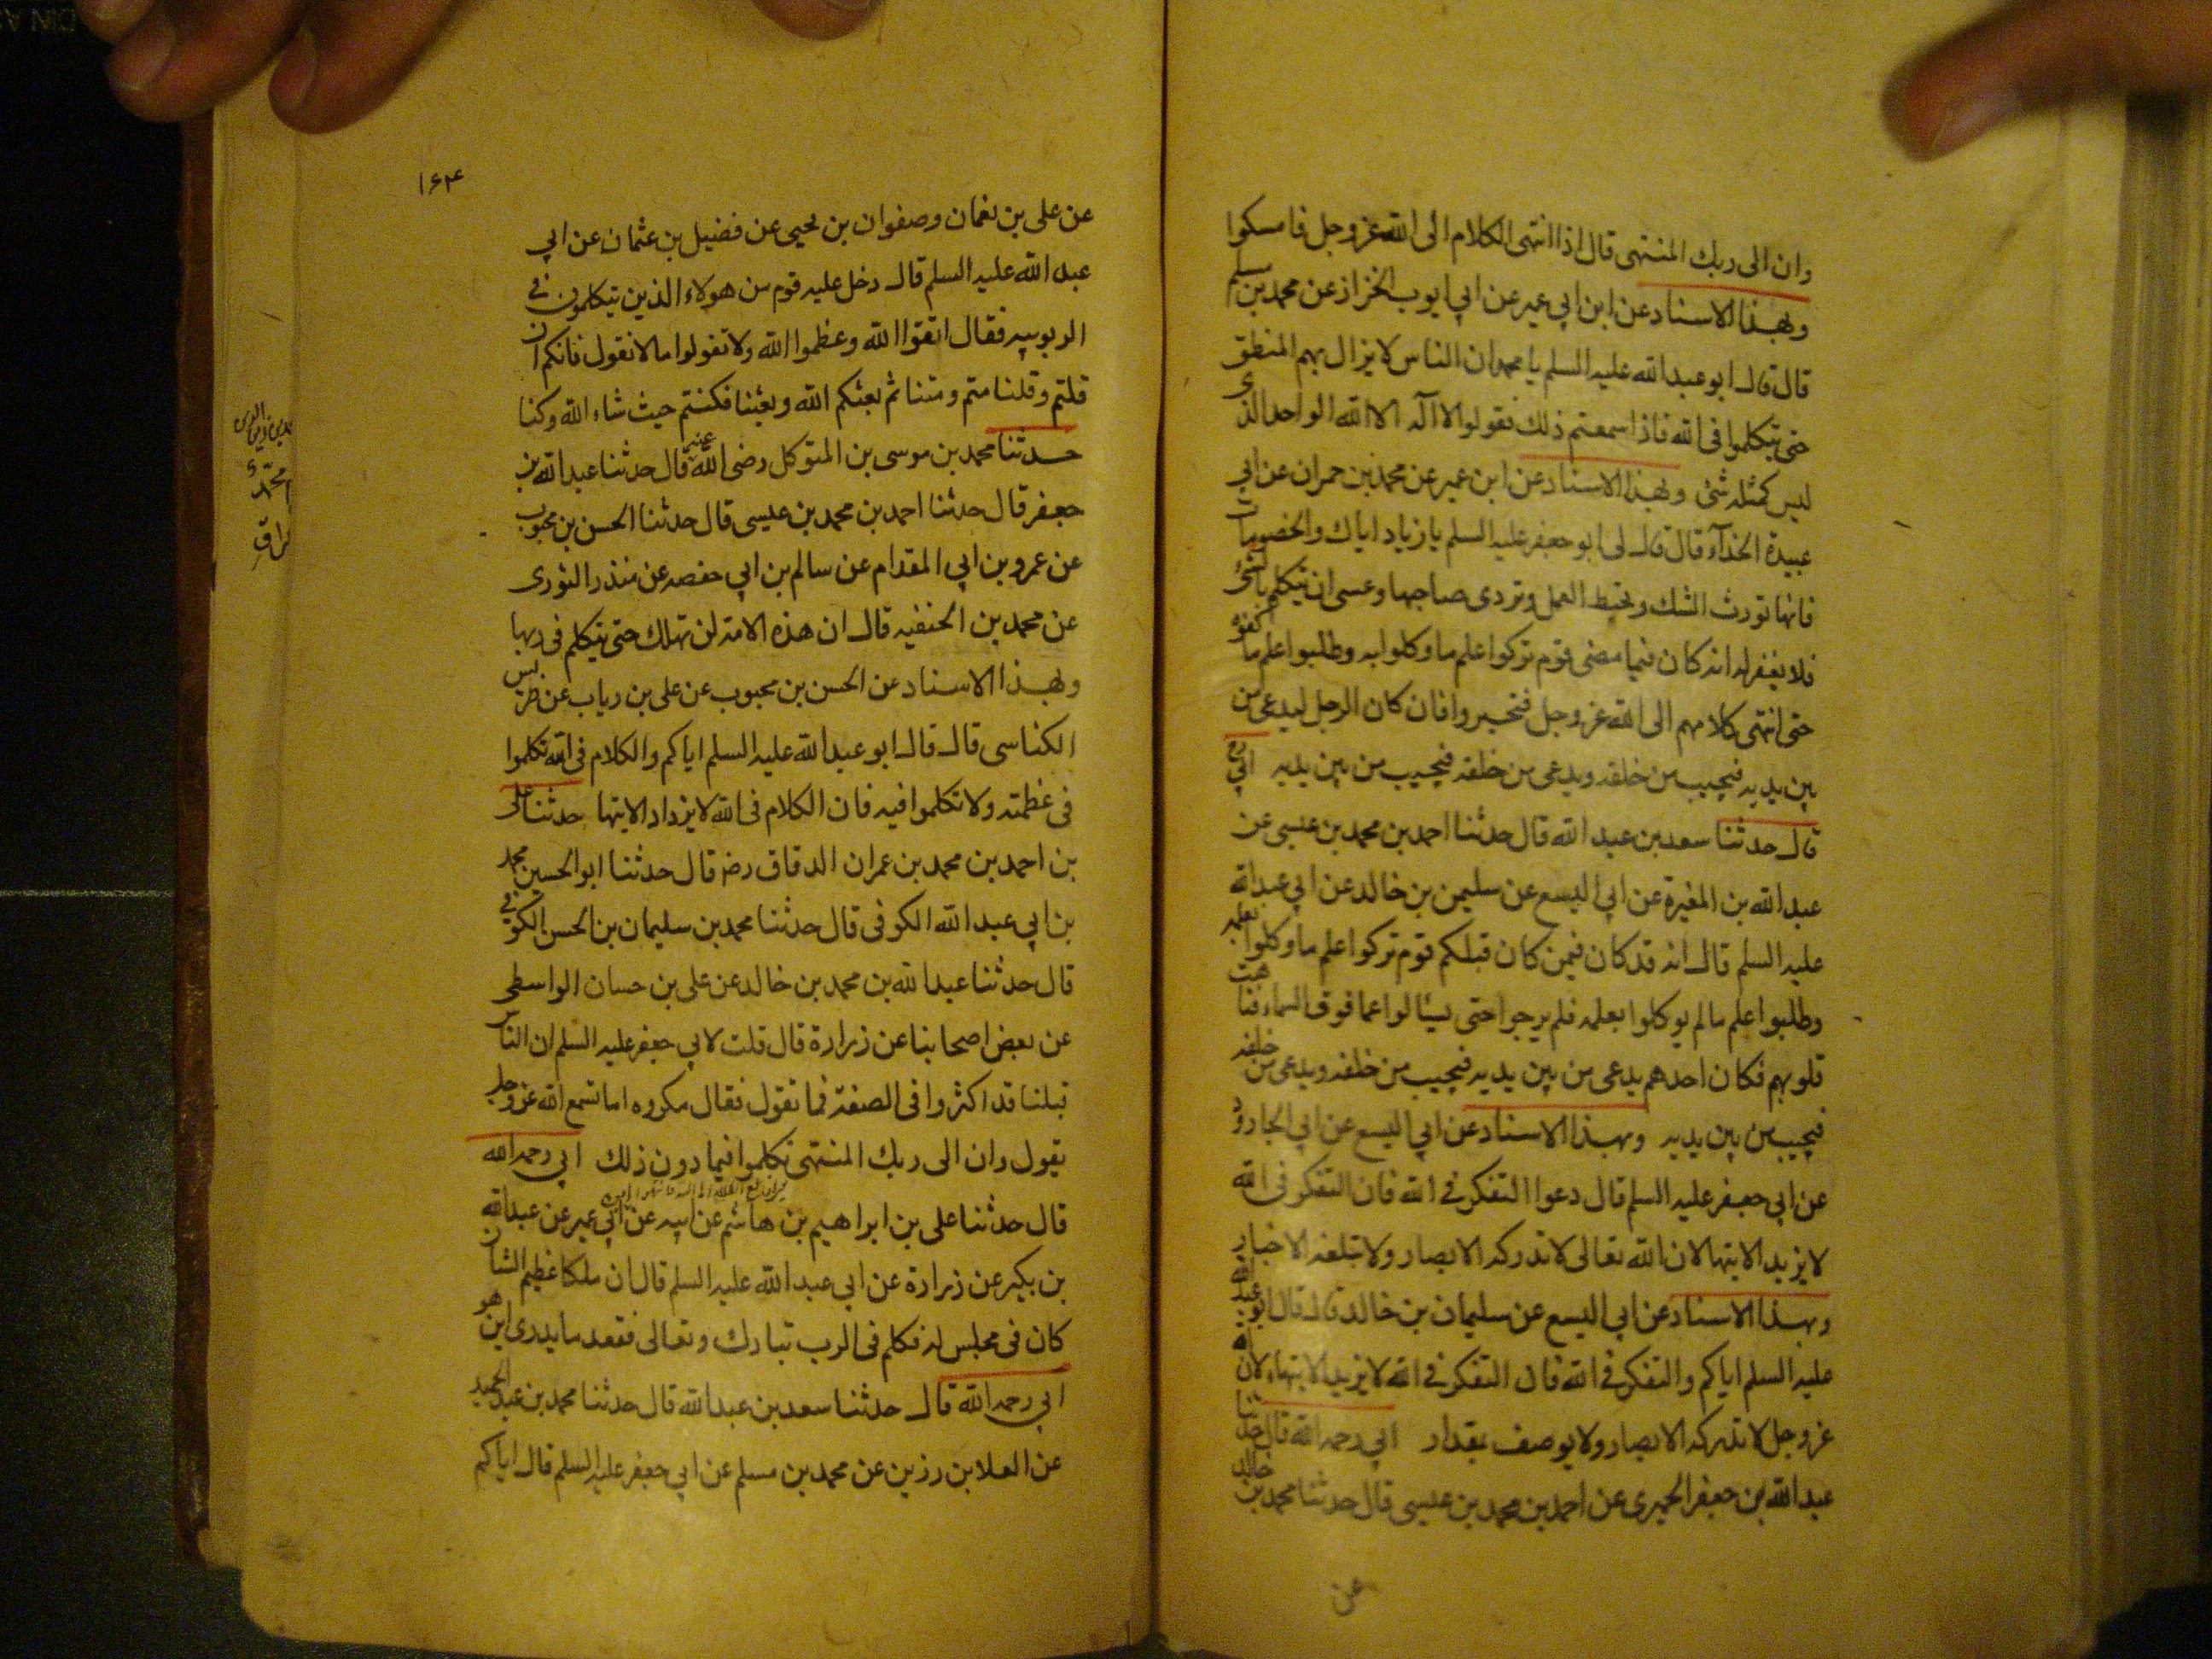 وان الى ربك المنتهى قال اذا انتهى الكلام الى الله عز وجل فامسكوا
وبهذا الاسناد عن ابن ابي عمير عن ابي ايوب الخزاز عن محمد بن مسلم
قال قال ابو عبد الله عليه السلم يا محمد ان الناس لا يزال بهم المنطق
حتى يتكلموا فى الله فاذا سمعتم ذلك فقولوا لا اله الا الله الواحد الذى
ليس كمثله شئ وبهذا الاسناد عن ابن عمير عن محمد بن حمران عن ابي
عبيدة الحذآء قال قال لى ابو جعفر عليه السلم يا زياد اياك والخصومات
فانها تورث الشك وتحبط العمل وتردى صاحبها وعسى ان يتكلم بالشئ
فلا يغفر له انه كان فيما مضى قوم تركوا علم ما وكلوا به وطلبوا علم ما كفوه
حتى انتهى كلامهم الى الله عز وجل فتحيروا فان كان الرجل ليدعى من
بين يديه فيجيب من خلفه ويدعى من خلفه فيجيب من بين يديه ابي رح
قال حدثنا سعد بن عبد الله قال حدثنا احمد بن محمد بن عيسى عن
عبد الله بن المغيرة عن ابي اليسع عن سليمن بن خالد عن ابي عبد الله
عليه السلم قال انه قد كان فيمن كان قبلكم قوم تركوا علم ما وكلوا بعلمه
وطلبوا علم ما لم يوكلوا بعلمه فلم يرجوا حتى يسئالوا عما فوق السماء فتاهت
قلوبهم فكان احدهم يدعى من بين يديه فيجيب من خلفه ويدعى من خلفه
فيجيب من بين يديه وبهذا الاسناد عن ابي اليسع عن ابي الجارود
عن ابي جعفر عليه السلم قال دعوا التفكر في الله فان التفكر فى الله
لا يزيد الا تيها لان الله تعالى لا تدركه الابصار ولا تبلغه الاخبار
وبهذا الاسناد عن ابي اليسع عن سليمان بن خالد قال قال ابو عبد الله
عليه السلم اياكم والتفكر فى الله فان التفكر في الله لا يزيد الا تيها لان الله
عز وجل لا تدركه الابصار ولا يوصف بمقدار ابي رحمه الله قال حدثنا
عبد الله بن جعفر الحميرى عن احمد بن محمد بن عيسى قال حدثنا محمد بن خالد
عن
١٦٤
عن على بن نعمان وصفوان بن يحيى عن فضيل بن عثمان عن ابي
عبد الله عليه السلم قال دخل عليه قوم من هولاء الذين يتكلمون في
الربوبيه فقال اتقوا الله وعظموا الله ولا تقولوا ما لا نقول فانكم ان
قلتم وقلنا متم ومتنا ثم بعثكم الله وبعثنا فكنتم حيث شاء الله وكنا
حدثنا محمد بن موسى بن المتوكل رضى الله عنهم قال حدثنا عبد الله بن
جعفر قال حدثنا احمد بن محمد بن عيسى قال حدثنا الحسن بن محبوب
عن عمرو بن ابي المقدام عن سالم بن ابي حفصه عن منذر الثورى
عن محمد بن الحنفيه قال ان هذه الامة لن تهلك حتى يتكلم فى ربها
وبهذا الاسناد عن الحسن بن محبوب عن على بن رياب عن ضريس
الكناسى قال قال ابو عبد الله عليه السلم اياكم والكلام فى الله تكلموا
فى عظمته ولا تكلموا فيه فان الكلام فى الله لا يزداد الا تيها حدثنا على
بن احمد بن محمد بن عمران الدقاق رضه قال حدثنا ابو الحسين محمد
بن ابي عبد الله الكوفى قال حدثنا محمد بن سليمان بن الحسن الكوفي
قال حدثنا عبد الله بن محمد بن خالد عن على بن حسان الواسطى
عن بعض اصحابنا عن زرارة قال قلت لابي جعفر عليه السلم ان الناس
قبلنا قد اكثروا فى الصفة فما تقول فقال مكروه اما تسمع الله عز وجل
يقول وان الى ربك المنتهى تكلموا فيما دون ذلك ابي رحمه الله
قال حدثنا على بن ابراهيم بن هاشم عن ابيه عن ابي عمير عن عبد الله
بن بكير عن زرارة عن ابي عبد الله عليه السلم قال ان ملكا عظيم الشان
كان فى مجلس له فتكلم فى الرب تبارك وتعالى فقعد ما يدرى اين هو
ابي رحمه الله قال حدثنا سعد بن عبد الله قال حدثنا محمد بن عبد الحميد
عن العلا بن رزين عن محمد بن مسلم عن ابي جعفر عليه السلم قال اياكم